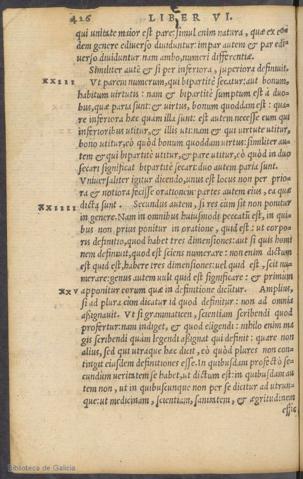 426 LIBER VI.
qui unitate maior est pare: simul enim natura, quæ ex eo
dem genere ediuerso diuiduntur: impar autem & par edi
uerso diuiduntur nam ambo, numeri differentiæ.
Similiter autẽ & si per inferiora, superiora definiuit.
XXIII Vt parem numerum, qui bipartitè secatur: aut bonum,
habitum uirtutis: nam & bipartitè sumptum est à duo
bus, quæ paria sunt: & uirtus, bonum quoddam est: qua
re inferiora hæc quam illa sunt: est autem necesse eum qui
inferioribus utitur, & illis uti: nam & qui uirtute utitur,
bono utitur, eò quòd bonum quoddam uirtus: similiter au
tem & qui bipartitè utitur, & pare utitur, eò quòd in duo
secari significat bipartitè secari: duo autem paria sunt.
Vniuersaliter igitur dicendo, unus est locus non per prio
ra & notiora fecisse orationem: partes autem eius, ea quæ
XXIIII dicta sunt. Secundus autem, si res cùm sit non ponitur
in genere. Nam in omnibus huiusmodi peccatũ est, in qui
bus non prius ponitur in oratione, quid est: ut corpo-
ris definitio, quod habet tres dimensiones: aut si quis homi
nem definiuit, quod est sciens numerare: non enim dictum
est quid est, habere tres dimensiones: uel quid est, scit nu
merare: genus autem uult quid est significare: & primum
XXV apponitur eorum quæ in definitione dicũtur. Amplius,
si ad plura cùm dicatur id quod definitur: non ad omnia
assignauit. Vt si grammaticen, scientiam scribendi quod
profertur: nam indiget, & quod eligendi: nihilo enim ma
gis scribendi quàm legendi assignat qui definit: quare non
alius, sed qui utraque hæc dicit, eò quòd plures non con-
tingit eiusdem definitiones esse. In quibusdam profectò se
cundùm ueritatem se habet, ut dictum est: in quibusdam au
tem non, ut in quibuscunque non per se dicitur ad utrun-
que: ut medicinam, scientiam, sanitatem, & ægritudinem
effic
Biblioteca de Galicia